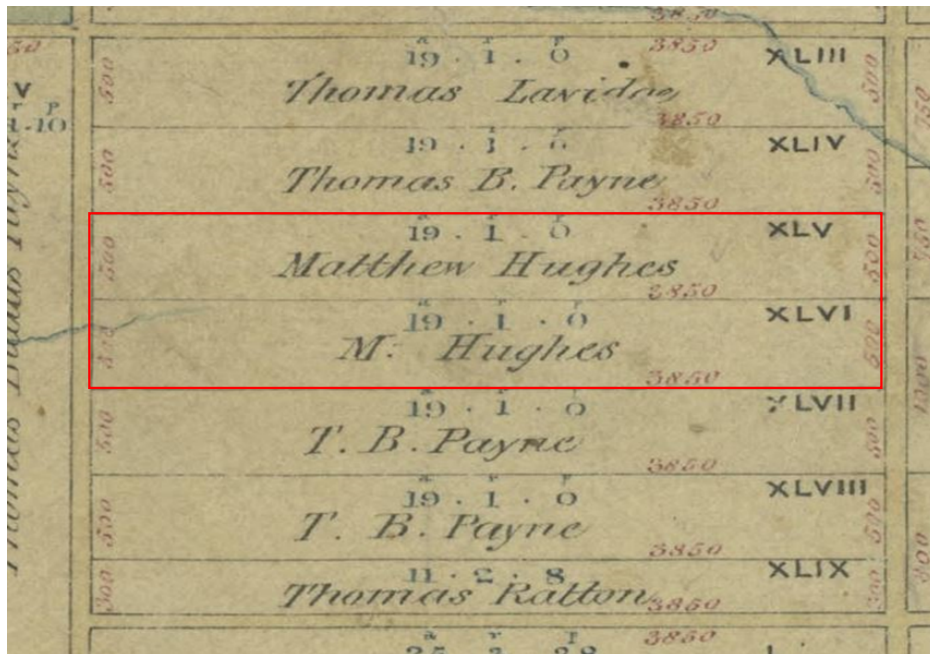 3850
a r p
19 . 1 . 0 3850 XLIII
500 Thomas Lavidge 500
3850
19 . 1 . 0 XLIV
500 Thomas B. Payne 500
3850
19 . 1 . 0 XLV
500 Matthew Hughes 500
3850
a r p
19 . 1 . 0 XLVI
500 M: Hughes 500
3850
19 . 1 . 0 XLVII
500 T. B. Payne 500
3850
a r p
19 . 1 . 0 XLVIII
500 T. B. Payne 500
3850
11 . 2 . 8 XLIX
300 Thomas Ratton 300
3850
a r p
3850